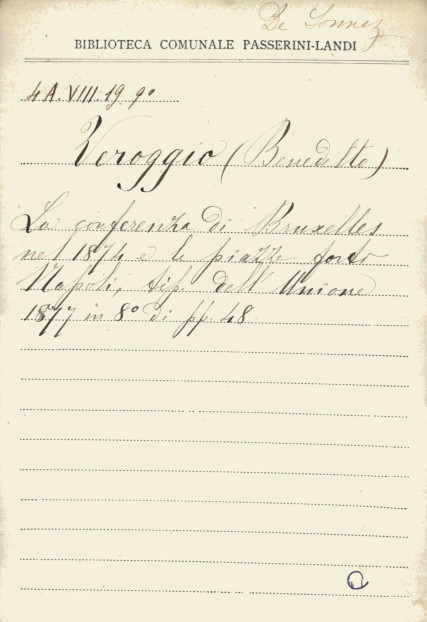 De Sonnaz
BIBLIOTECA COMUNALE PASSERINI-LANDI
4 A. VIII. 19 9º
Veroggio (Benedetto)
La conferenza di Bruxelles
nel 1874 e le piazze forti
Napoli, tip. dell'Unione
1877 in 8º di pp. 48